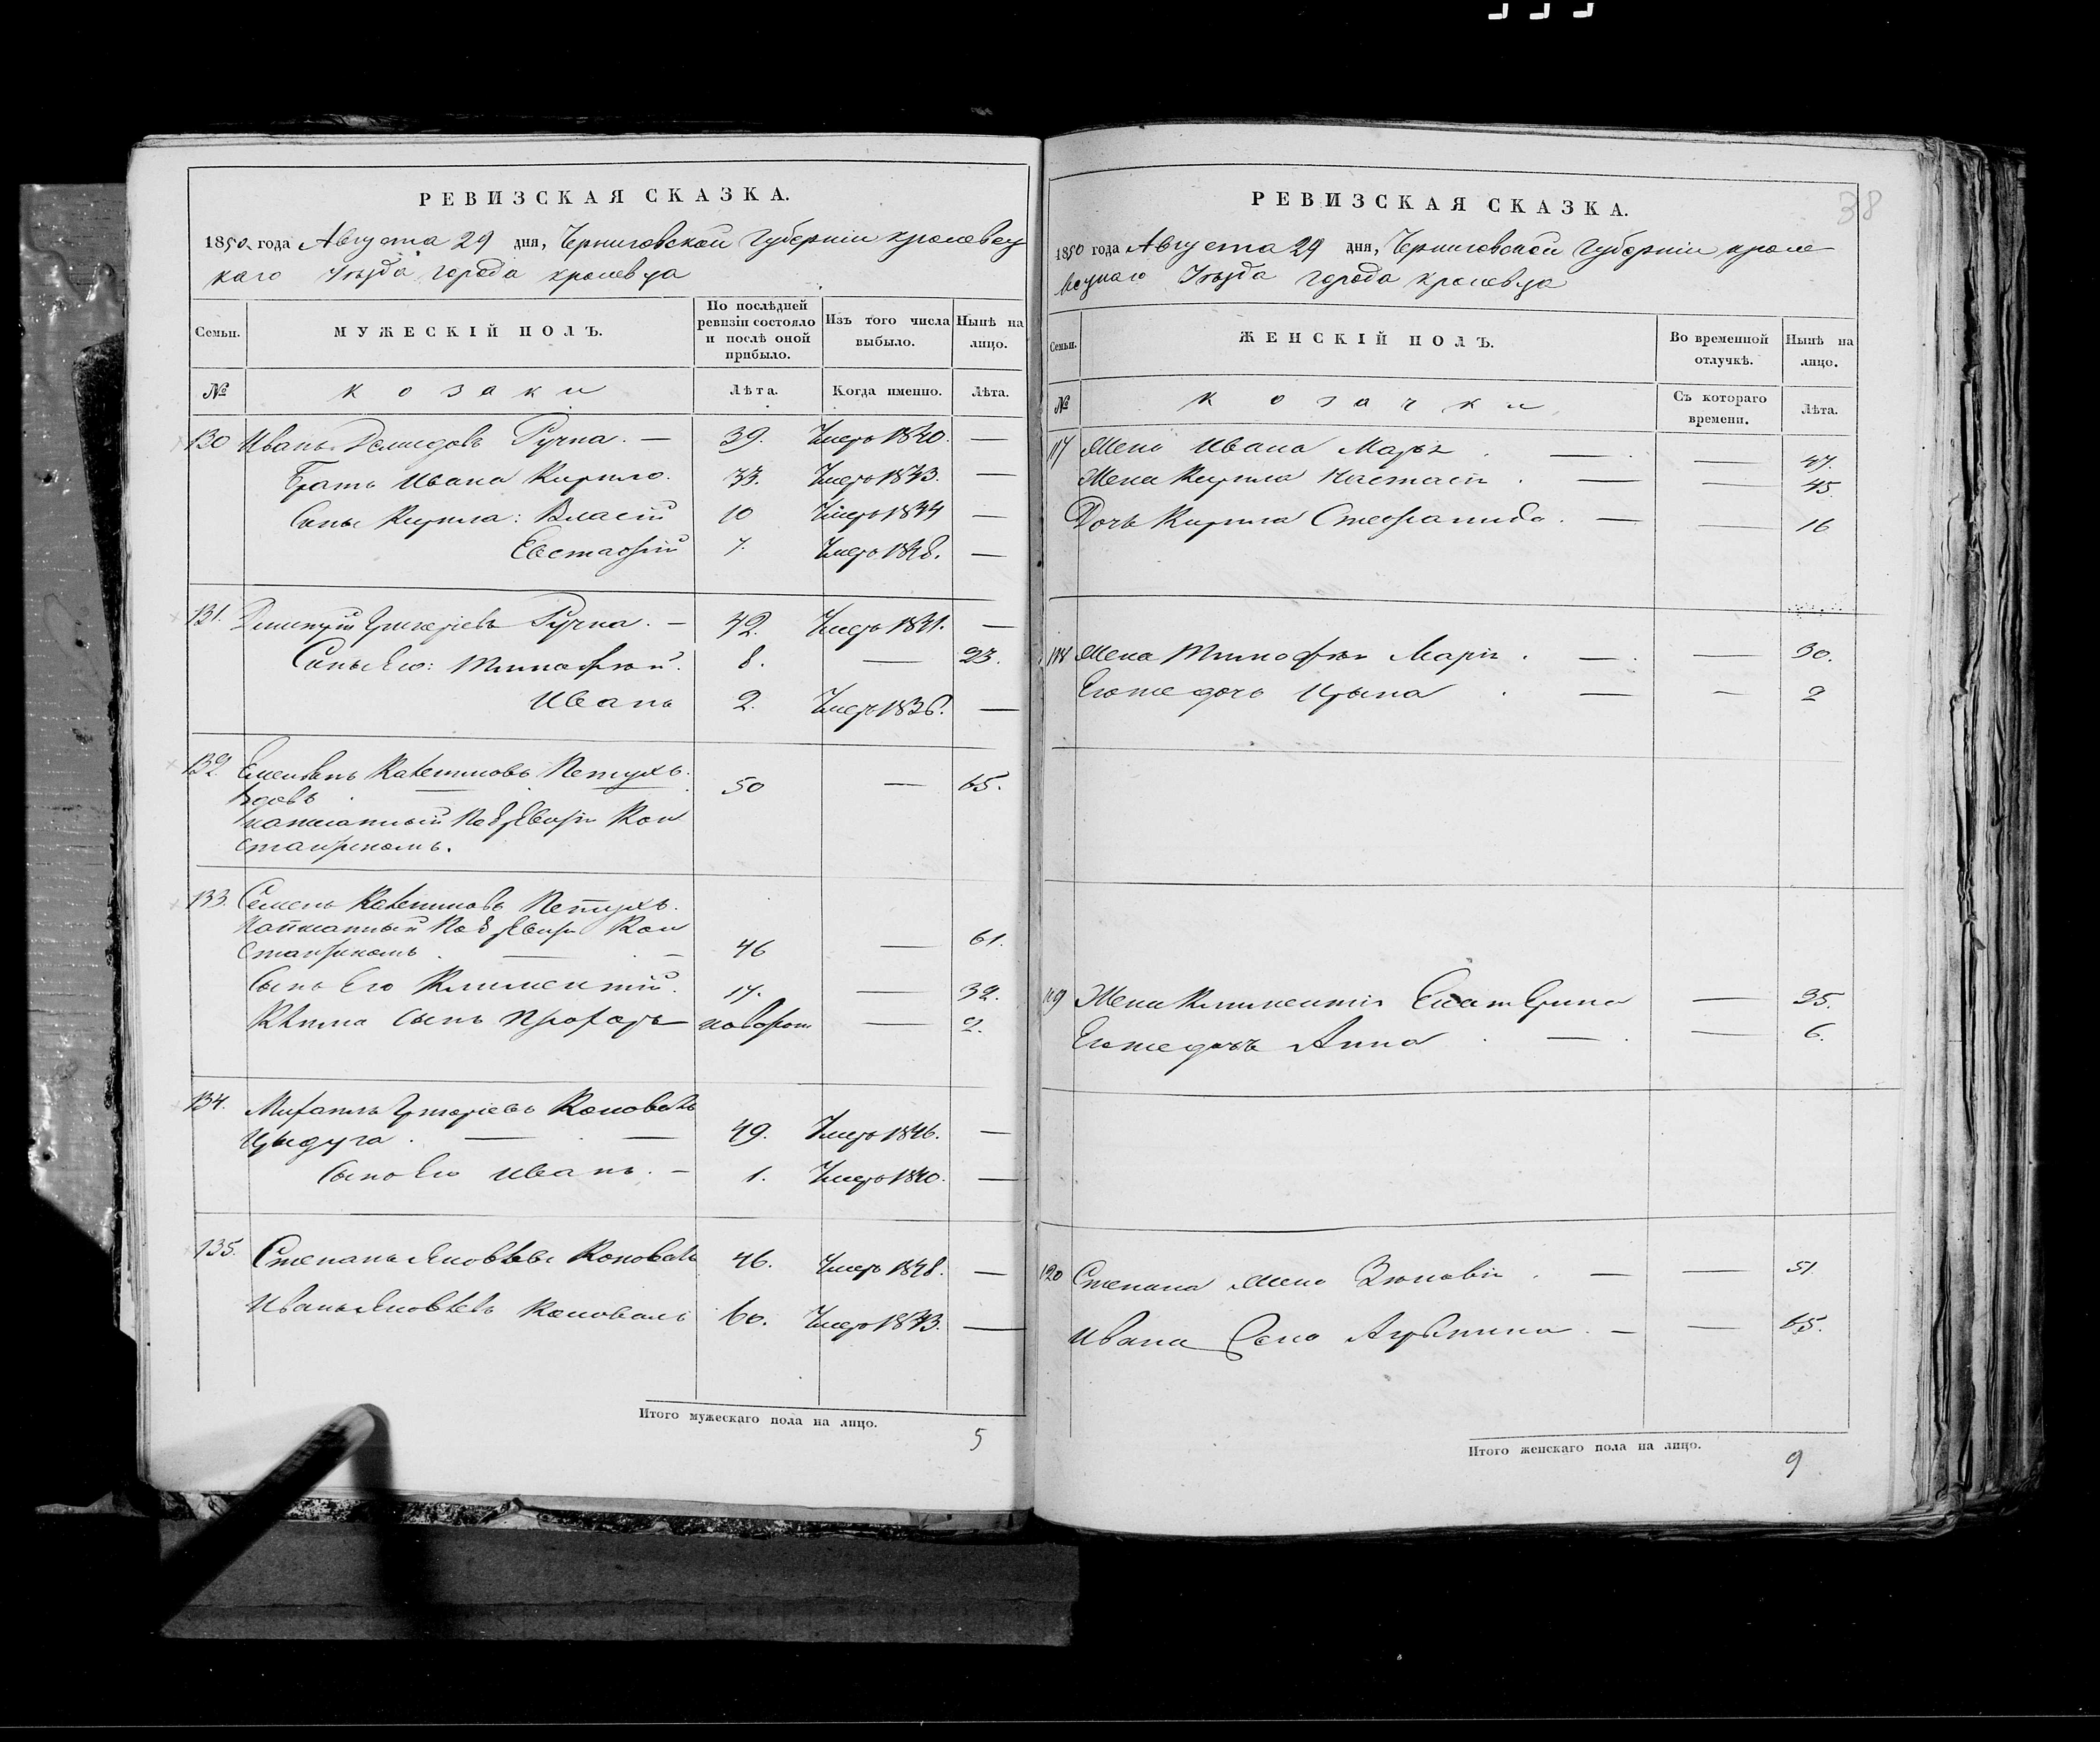 РЕВИЗСКАЯ СКАЗКА.
1850 года Августа 29 дня, Черниговской Губерніи кролевец
каго Уѣзда города кролевца
Семьи.
МУЖЕСКІЙ ПОЛЪ.
По послѣдней ревизіи состояло и послѣ оной прибыло.
Изъ того числа выбыло.
Нынѣ на лицо.
№ козаки Лѣта. Когда именно. Лѣта.
130 Иванъ Демидовъ Ручка. — 39. Умеръ 1840. —
Братъ Ивана Кирило. 33. Умеръ 1843. —
Сыны Кирила: Власій 10 Умеръ 1834 —
Евстафій 7. Умеръ 1848. —
131. Дмитрій Григоріевъ Ручка. — 42. Умеръ 1841. —
Сыны Его: Тимофей. 8. — 23.
Иванъ 2. Умеръ 1836. —
132. Петухъ.
вдовъ . — 50 — 65.
133. Семенъ Петухъ.
46 — 61.
Сынъ Его Климентій. 17. — 32.
сынъ новорож — 2.
134. Михаилъ Григоріевъ Коновалъ
. — . — 49. Умеръ 1846. —
Сынъ Его Иванъ. — 1. Умеръ 1840. —
135. Степанъ Яковлевъ Коновалъ 46. Умеръ 1848. —
Иванъ Яковлевъ Коновалъ 60. Умеръ 1843. —
Итого мужескаго пола на лицо.
5
38
РЕВИЗСКАЯ СКАЗКА.
1850 года Августа 29 дня, Черниговской Губерніи кроле
вецкаго Уѣзда города кролевца
Семьи.
ЖЕНСКІЙ ПОЛЪ.
Во временной отлучкѣ.
Нынѣ на лицо.
№ козачки Съ котораго времени. Лѣта.
117 Жена Ивана Марья . — . — 47.
Жена Кирила Настасія . — — 45.
Дочь Кирила Степанида . — — 16
118 Жена Тимофея Марія . — . — 30.
Егоже дочь Ирына . — — 2
119 Жена Климентія Екатерина — 35.
Егоже дочь Анна . — . — 6.
120 Степана жена Зиновія . — — 51.
Ивана . — — 65.
Итого женскаго пола на лицо.
9